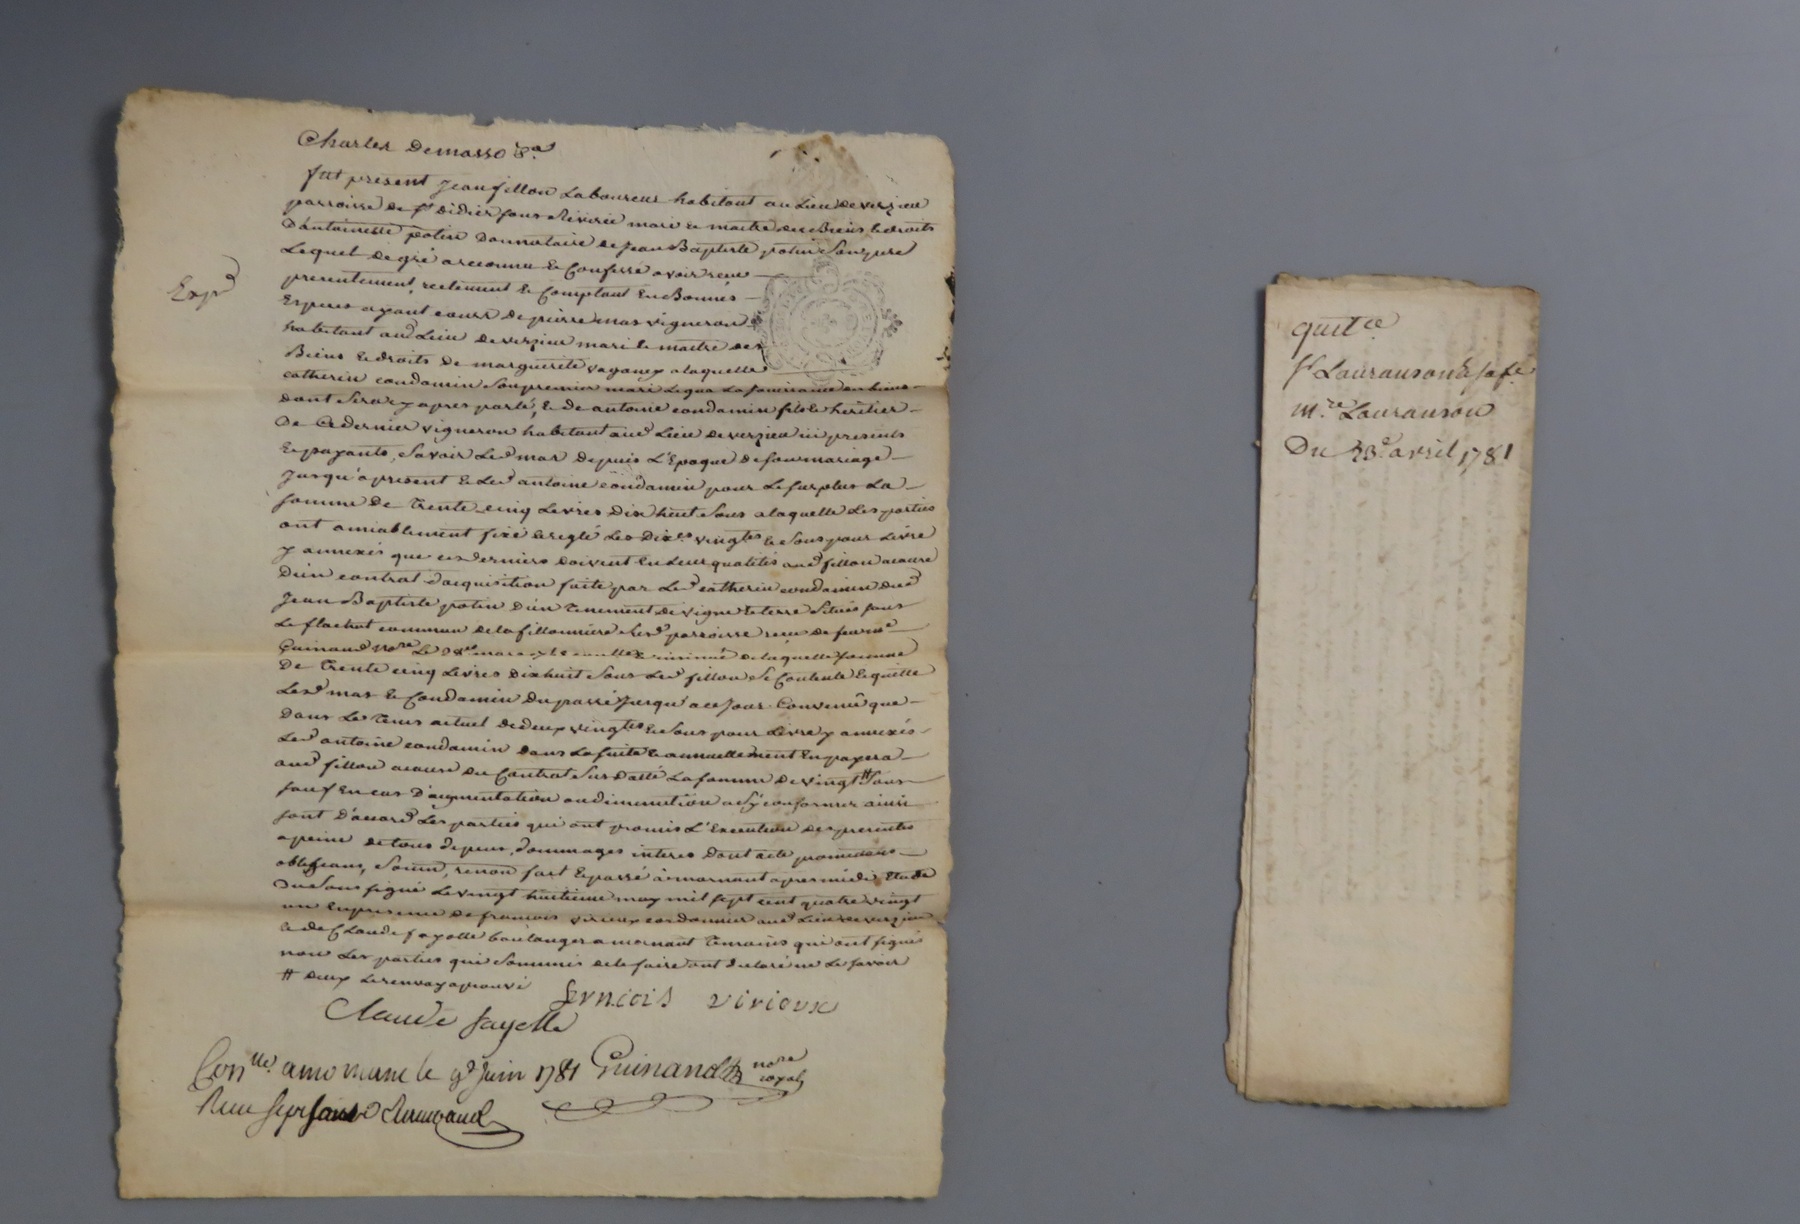 Charles Demasso
fut present Jean fillon Laboureur habitant au Lieu de verzieu
parroisse de st didier sous Riverie mari & maitre des Biens & droits
D'antoinette potin Donnataire de Jean Baptiste potin Son pere
Lequel de gré a reconnu & Confessé avoir reçu
presentement, reelement & Comptant En Bonnes
Especes ayant cours de pierre mas vigneron
habitant aud Lieu de verzieu mari & maitre des
Biens & droits De marguerite a laquelle
Expd
catherin condamin Son premier mari Legua La Jouissance
dont Sera cy apres parlé, & de antoine condamin fils & heritier
De Ce dernier vigneron habitant aud Lieu de verzieu ici presents
& payants, Savoir Led mas Depuis L'Epoque de son mariage
Jusqu'a present & Led antoine condamin pour Le surplus La
somme De trente cinq Livres Dix huit Sous a laquelle Les parties
ont amiablement fixé & reglé Les Dixes vingtes & Sous pour Livre
y annexés que ces derniers doivent En Leurs qualités aud fillon acause
D'un contrat d'acquisition faite par Led catherin condamin dud
Jean Baptiste potin D'un tenement de vigne & terre Situés sous
Le commun de la fillonniere Susd parroisse reçu de feu me
Guinand nore Le de laquelle somme
De trente cinq Livres dixhuit Sous Led fillon Se Contente & quitte
Lesd mas & Condamin Du passé Jusqu'a ce Jour. Convenu que
Dans Le tems actuel de deux vingtes & Sous pour Livre y annexés
Led antoine condamin Dans La suite & annuellement En payera
aud fillon acause du Contrat Sus Datté La somme De vingt # Sous
sauf En cas D'augmentation ou diminution a S'y conformer ainsi
sont D'accord Les parties qui ont promis L'Execution des presentes
a peine de tous depens, dommages interes Dont acte
obligeans, Soum, renon fait & passé a mornant apres midi Etude
Du Sous signé Le vingt huitieme may mil sept cent quatre vingt
un En presence de francois virieux cordonnier aud Lieu de verzieu
& de Claude fayolle boulanger a mornant temoins qui ont signé
non Les parties qui Sommés de le faire ont declaré ne Le Savoir
# deux Le renvoy aprouvé
fernciois virioux
Claude fayolle
Conlle a mornant le 9e Juin 1781 Guinand nore royal
Reçu sept sous
quitce
sr Lauranson a sa fe
mre Lauranson
Du 23e avril 1781